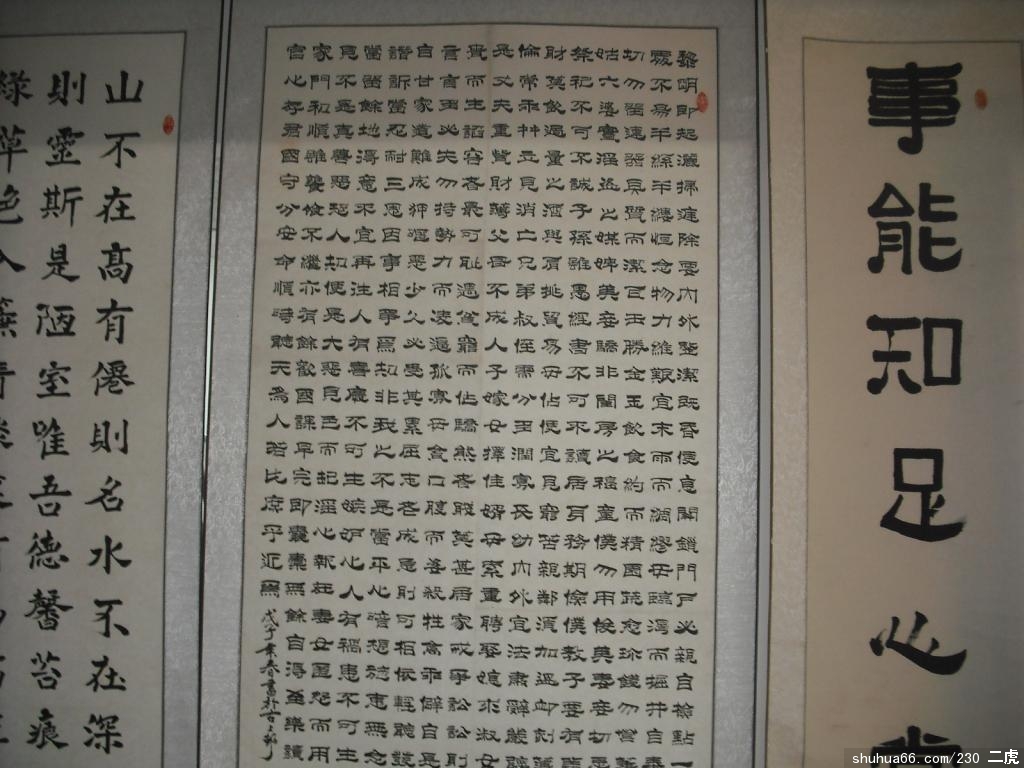 事能知足心常
黎明即起灑掃庭除要內外整潔既昏便息關鎖門戶必親自檢點一
處不易半絲半縷恒念物力維艱宜未雨而綢繆毋臨渴而掘井自奉
切勿留連器具質而潔瓦缶勝金玉飲食約而精園蔬愈珍饈勿營
姑六婆實淫盜之媒婢美妾驕非閨房之福童僕勿用俊美妻妾切
祭祀不可不誠子孫雖愚經書不可不讀居身務期儉樸教子要有
財莫飲過量之酒與肩挑貿易毋佔便宜見窮苦親鄰須加溫卹刻
倫常乖舛立見消亡兄弟叔侄需分多潤寡長幼內外宜法肅辭嚴聽
是丈夫重貲財薄父母不成人子嫁女擇佳婿毋索重聘娶媳求淑女
貴而生諂容者最可恥遇貧窮而作驕態者賤莫甚居家戒爭訟訟則
言多必失勿恃勢力而凌逼孤寡毋貪口腹而恣殺牲禽乖僻自是
自甘家道難成狎暱惡少久必受其累屈志老成急則可相依輕聽發
譖訴當忍耐三思因事相爭焉知非我之不是當平心暗想施惠無念
當留餘地得意不宜再往人有喜慶不可生妒心人有禍患不可生
見不是真善惡恐人知便是大惡見色而起淫心報在妻女匿怨而用
家門和順雖饔飧不繼亦有餘歡國課早完即囊橐無餘自得至樂讀
官心存君國守分安命順時聽天為人若此庶乎近焉
戊子年春書於
山不在高有僊則名水不在深
則靈斯是陋室唯吾德馨苔痕
綠草色入簾青談笑
shuhua66.com/230 二虎